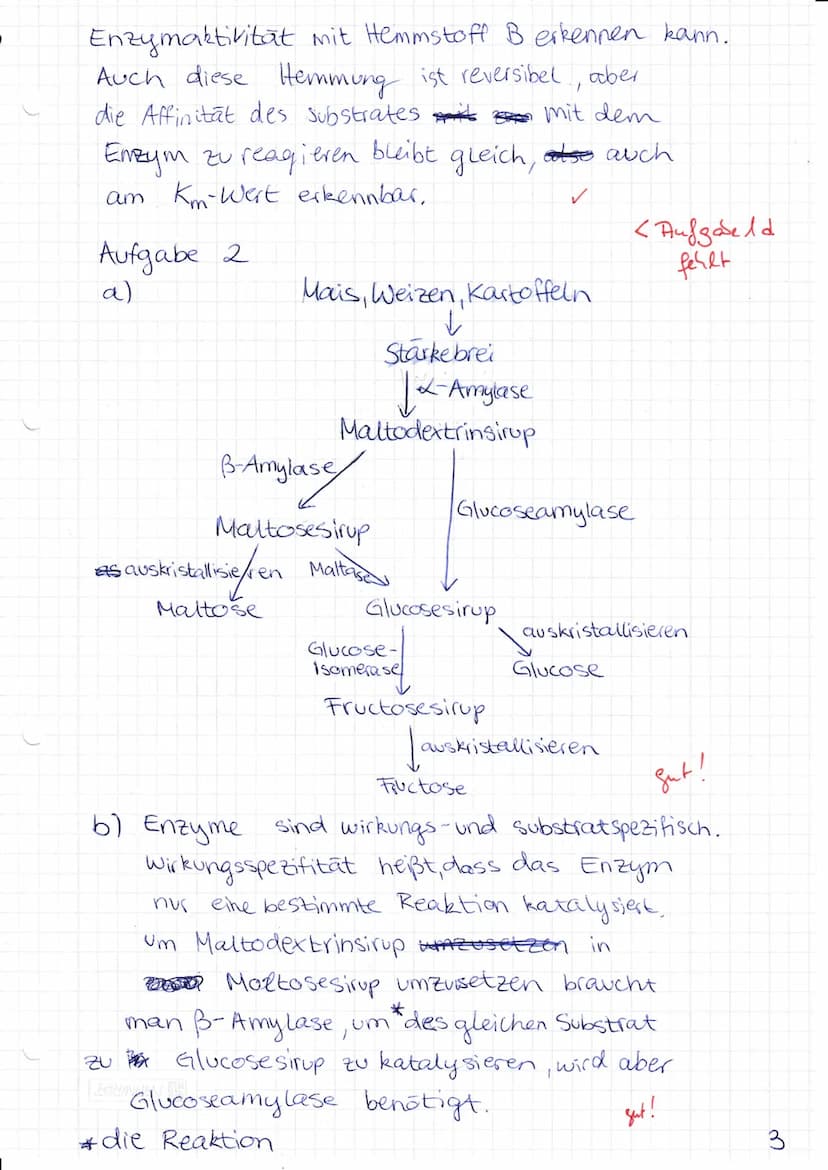 Enzymaktivität mit Hemmstoff B erkennen kann.
Auch diese Hemmung ist reversibel, aber
die Affinität des Substrates mit dem
Enzym zu reagieren bleibt gleich, also auch
am Km-Wert erkennbar. ✓
< Aufgabe 1d
fehlt
Aufgabe 2
a) Mais, Weizen, Kartoffeln
↓
Stärkebrei
↓ α-Amylase
Maltodextrinsirup
β-Amylase
Glucoseamylase
Maltosesirup
auskristallisieren Maltase
Maltose Glucosesirup
auskristallisieren
Glucose-
Isomerase
Glucose
Fructosesirup
↓ auskristallisieren
Fructose
gut!
b) Enzyme sind wirkungs- und substratspezifisch.
Wirkungsspezifität heißt, dass das Enzym
nur eine bestimmte Reaktion katalysiert.
Um Maltodextrinsirup umzusetzen in
Maltosesirup umzusetzen braucht
man β-Amylase, um * des gleichen Substrat
zu Glucosesirup zu katalysieren, wird aber
Glucoseamylase benötigt.
gut!
* die Reaktion
3